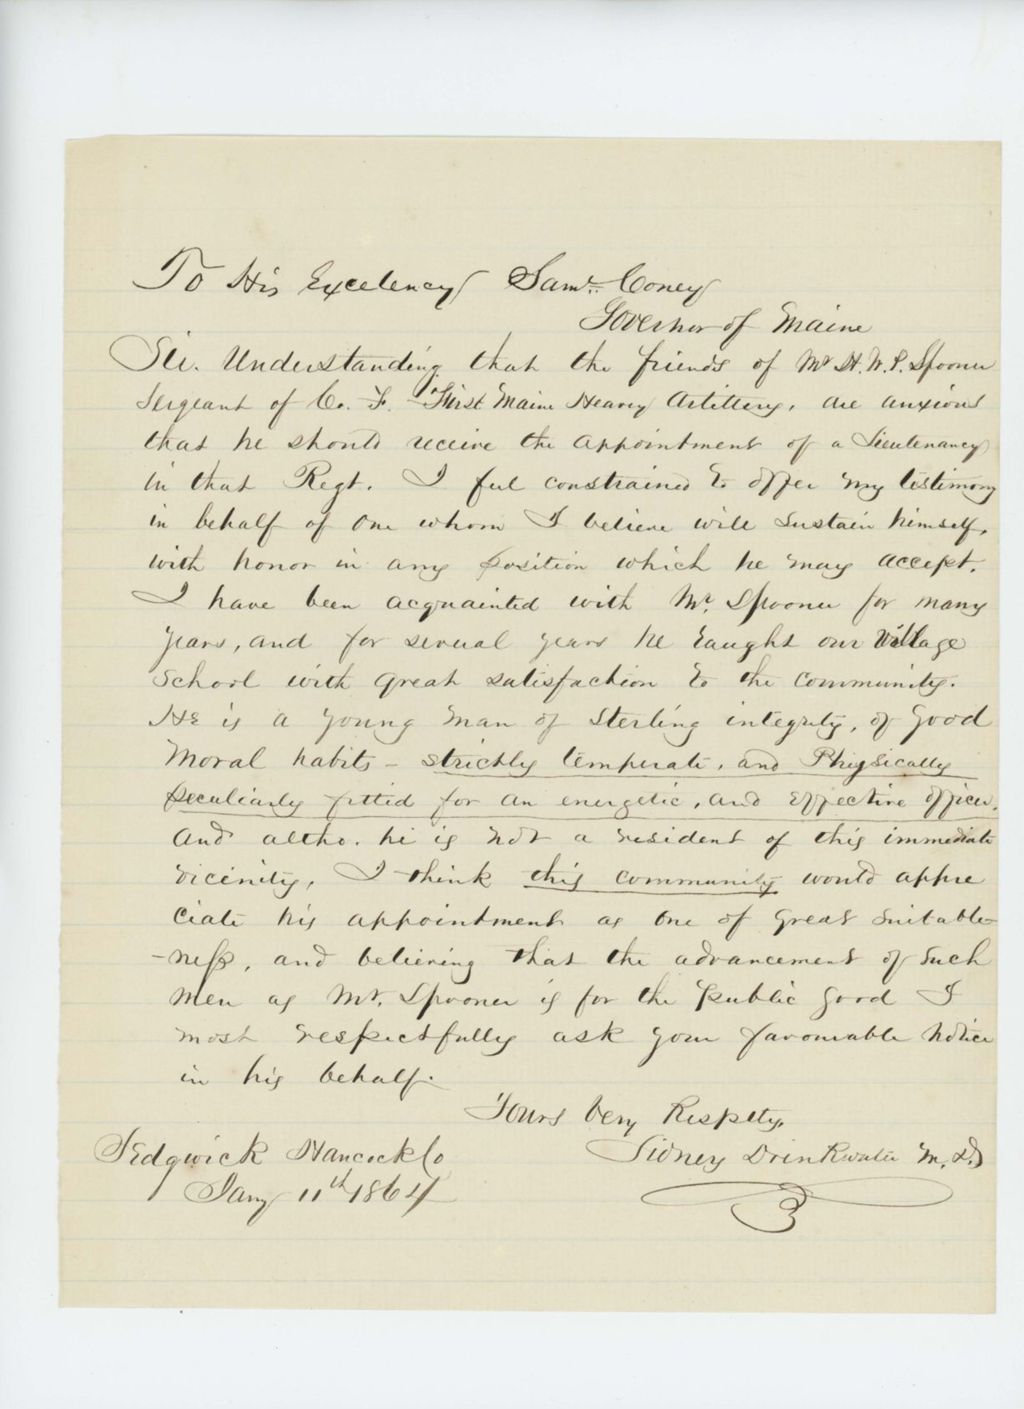 To His Excelency Saml. Coney
Governor of Maine
Sir. Understanding that the friends of Mr H. W. P. Spooner
Sergeant of Co. F. First Maine Heavy Artillery, are anxious
that he should receive the appointment of a Lieutenancy
in that Regt. I feel constrained to offer my testimony
in behalf of one whom I believe will sustain himself,
with honor in any position which he may accept.
I have been acquainted with Mr. Spooner for many
years, and for several years he taught our Village
School with great satisfaction to the community.
He is a young man of sterling integrity, of good
moral habits - strictly temperate, and Physically
peculiarly fitted for an energetic, and effective officer.
and altho. he is not a resident of this immediate
vicinity, I think this community would appre
ciate his appointment as one of great suitable-
-ness, and believing that the advancement of such
men as Mr. Spooner is for the public good I
most respectfully ask your favourable notice
in his behalf.
Yours Very Respctly,
Sedgwick Hancock Co
Sidney Drinkwater M.D.
Jany 11th 1864